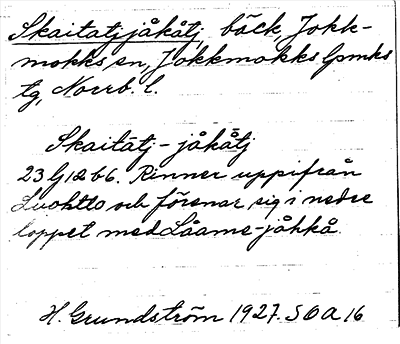 Skaitatjjåkåtj, bäck, Jokk-
mokks sn, Jokkmokks lpmks
tg, Norrb. l.
Skaitátj-jåkåtj
23 G 1a b 6. Rinner uppifrån
Luohtto och förenar sig i nedre
loppet med Låame-jåhkå.
H. Grundström 1927. SOA 16